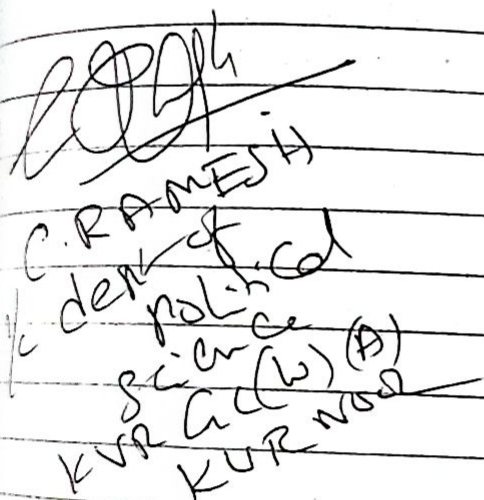 C. RAMESH
dept of
political
science
KVR GC(W) (A)
KURNOOL